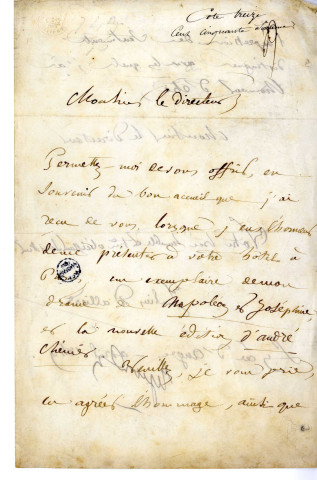 Cote treize
Cent cinquante
Monsieur le directeur
Permettez moi de vous offrir, en
souvenir du bon accueil que j'ai
recu de vous, lorsque j'eus l'honneur
de me présenter à votre hôtel à
un exemplaire de mon
drame Napoléon et Joséphine,
et la nouvelle édition d'andré
Chénier
Veuillez, je vous prie,
en agréer l'hommage, ainsi que